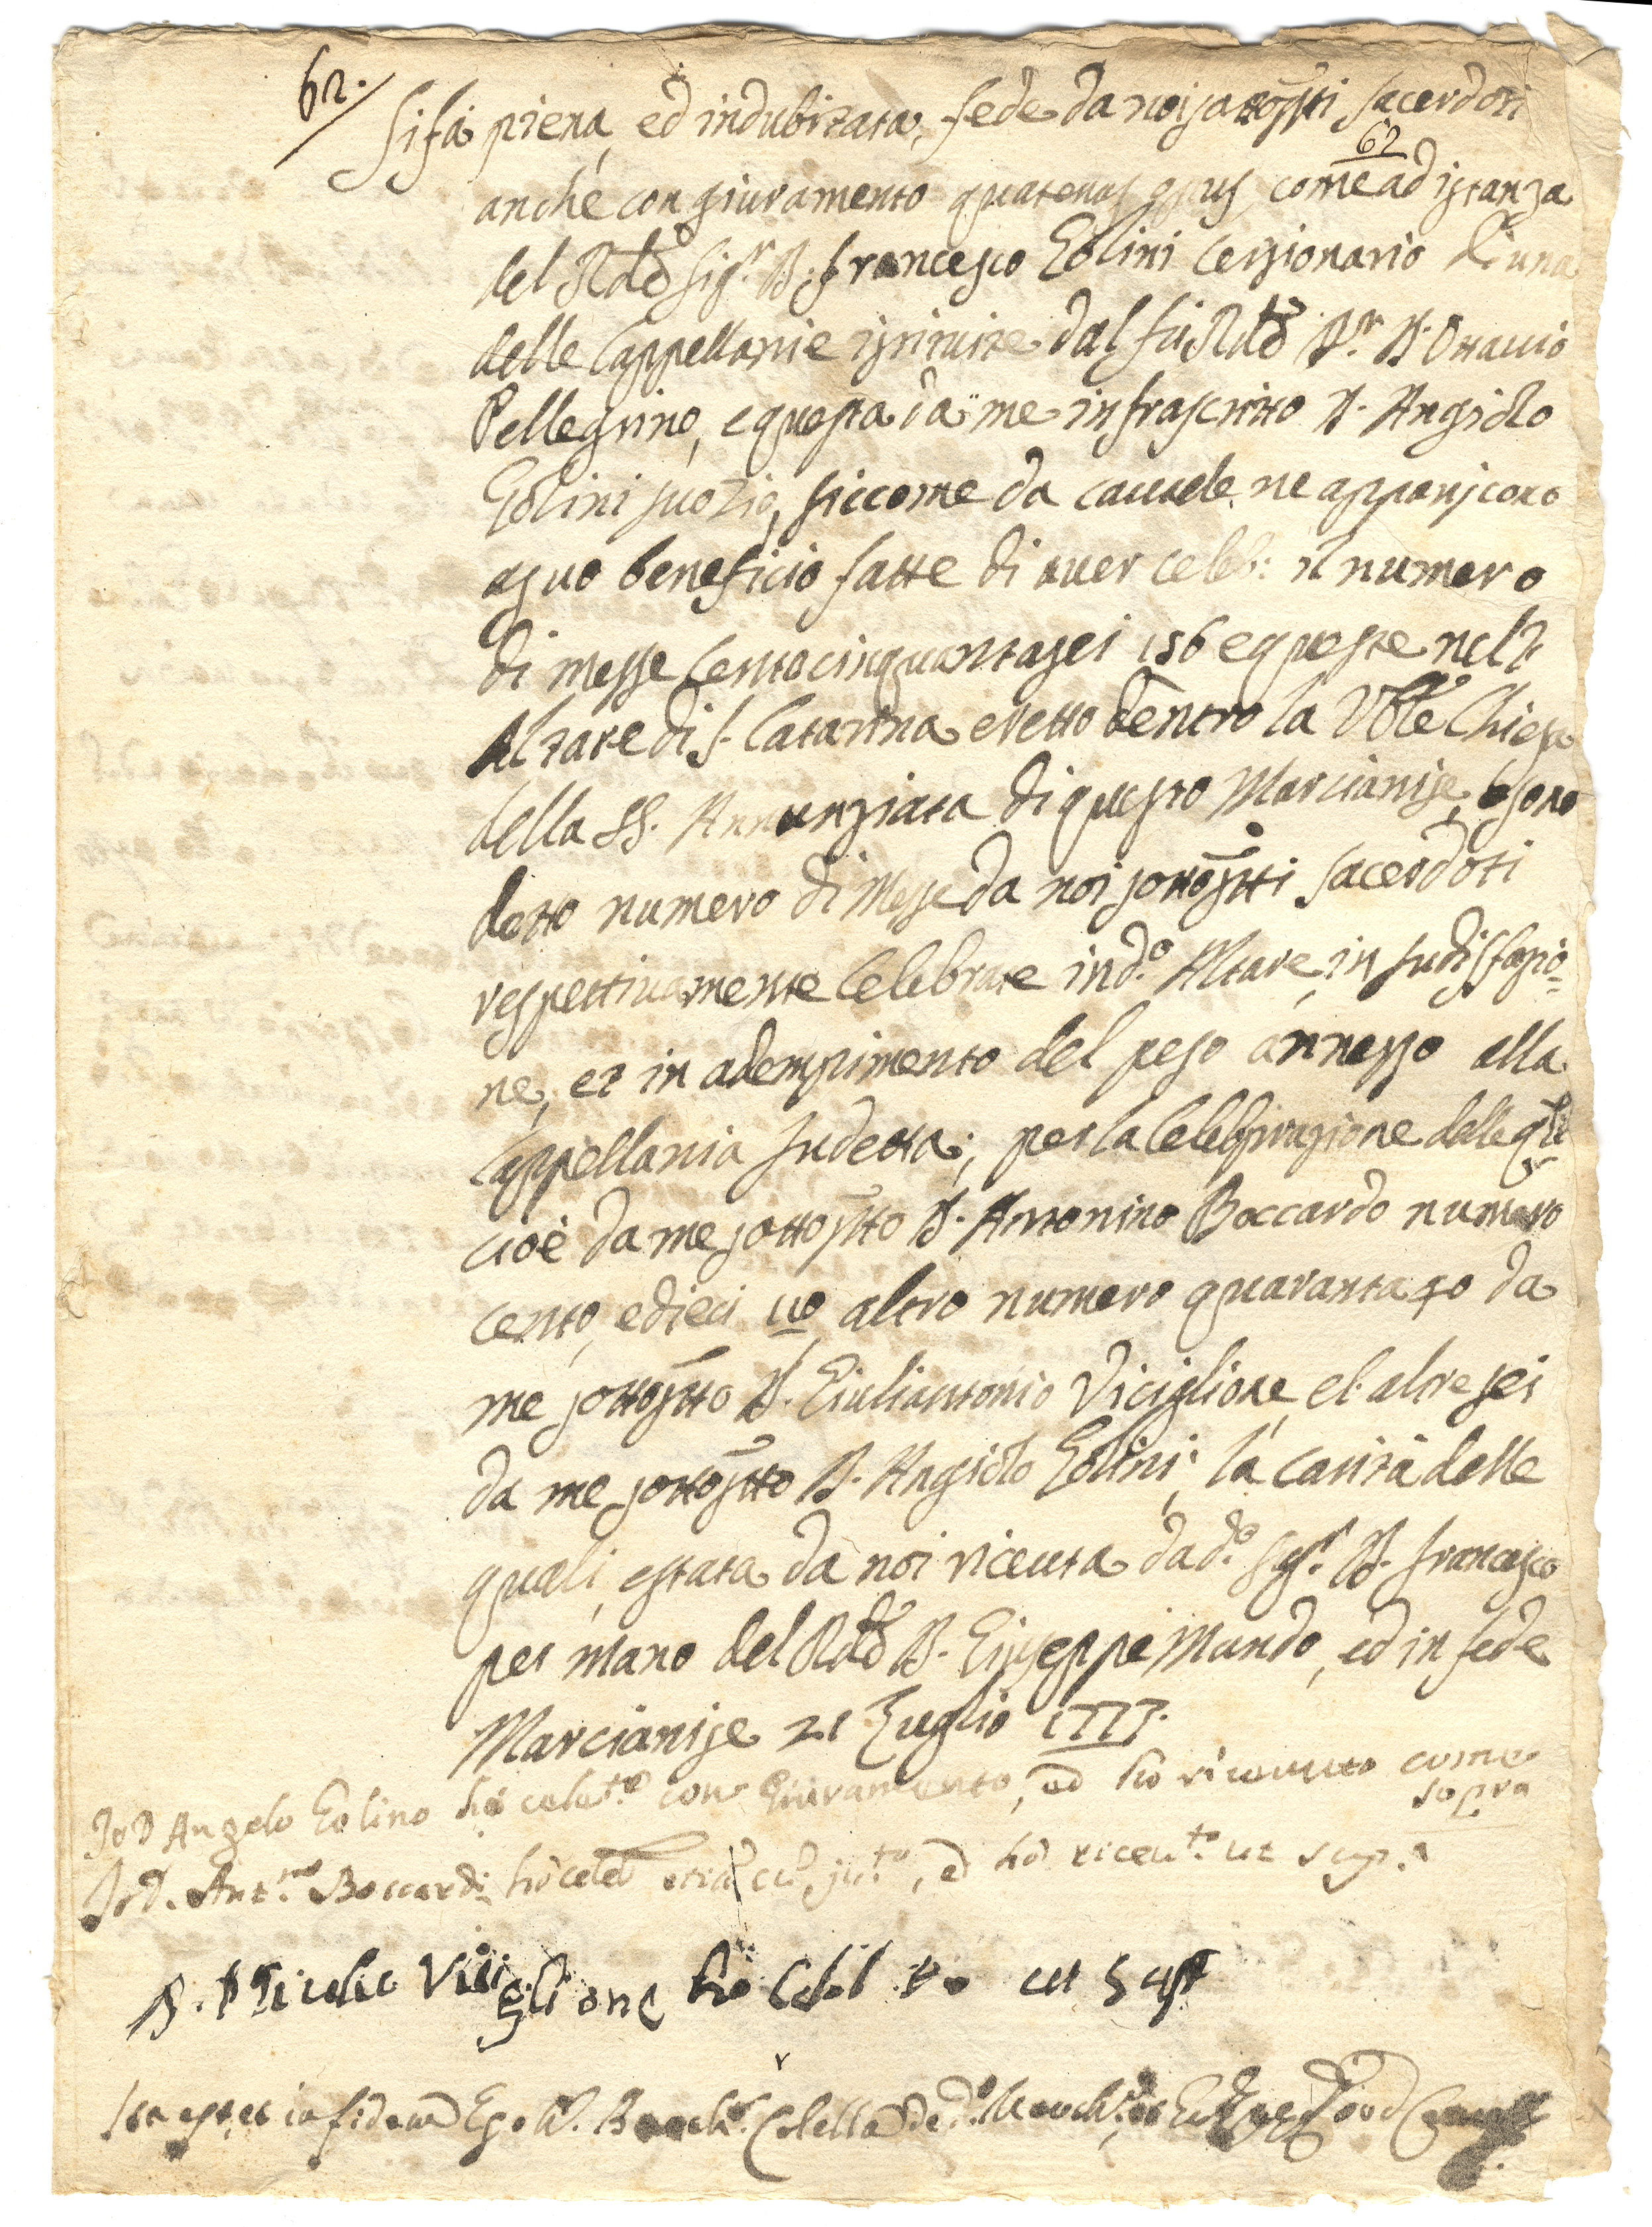 62.
Si fà piena, ed indubitata fede da noi sottoscritti sacerdoti
62
anche con giuramento quatenus opus, come ad istanza
del Rdo Sigr. D. Francesco Golini Cessionario d'una
delle Cappellanie istituite dal fù Rdo Sr. D. Ottavio
Pellegrino, e questa da me infrascritto D. Angiolo
Golini suo Zio, siccome da cautele ne appariscono
a suo beneficio fatte di aver celeb: il numero
di messe Centocinquantasei 156 e queste nell'
Altare di S. Catarina eretto dentro la Vble Chiesa
della SS. Annunziata di questo Marcianise, e sono
detto numero di Messe da noi sottostti Sacerdoti
respettivamente Celebrate in d.o Altare, in sudisfazio=
ne, et in adempimento del peso annesso alla
Cappellania sudetta; per la Celebrazione delle qli
cioè da me sottostto D. Antonino Boccardo numero
cento, e dieci 110, altro numero quaranta 40 da
me sottostto D. Giuliantonio Viciglione, el altre sei
da me sottostto D. Angiolo Golini; la carità delle
quali, è stata da noi riceuta da d.o Sigr. D. Francesco
per mano del Rdo D. Giuseppe Mundo, ed in fede
Marcianise 21 Luglio 1773.
Io D Angelo Golino hò celeto con Giuramento, ed hò riceuuto come
sopra
Io D. Antno Boccardi hò celeb etiã cũ juto, ed hò riceuto ut supa
D. Viciglione hò Celebto ut supr
Ita est et in fidem Ego D. Colella